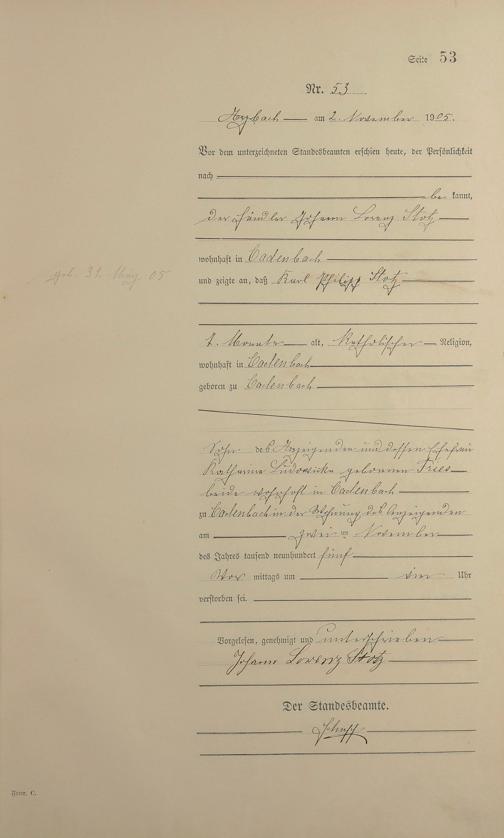 Seite 53
Nr. 53
am 2. November 1905.
Vor dem unterzeichneten Standesbeamten erschien heute, der Persönlichkeit
nach
be kannt,
der Händler Johann Lorenz Stotz
wohnhaft in Cadenbach
geb. 31. May 05
und zeigte an, daß Karl Philipp Stotz
Monate alt, katholischer Religion,
wohnhaft in Cadenbach
geboren zu Cadenbach
Sohn des Anzeigenden und dessen Ehefrau
Katharina geborenen Fries
beide wohnhaft in Cadenbach
zu Cadenbach in der Wohnung des Anzeigenden
am zwei ten November
des Jahres tausend neunhundert fünf
Vor mittags um Uhr
verstorben sei.
Vorgelesen, genehmigt und unterschrieben
Johann Lorenz Stotz
Der Standesbeamte.
Form. C.